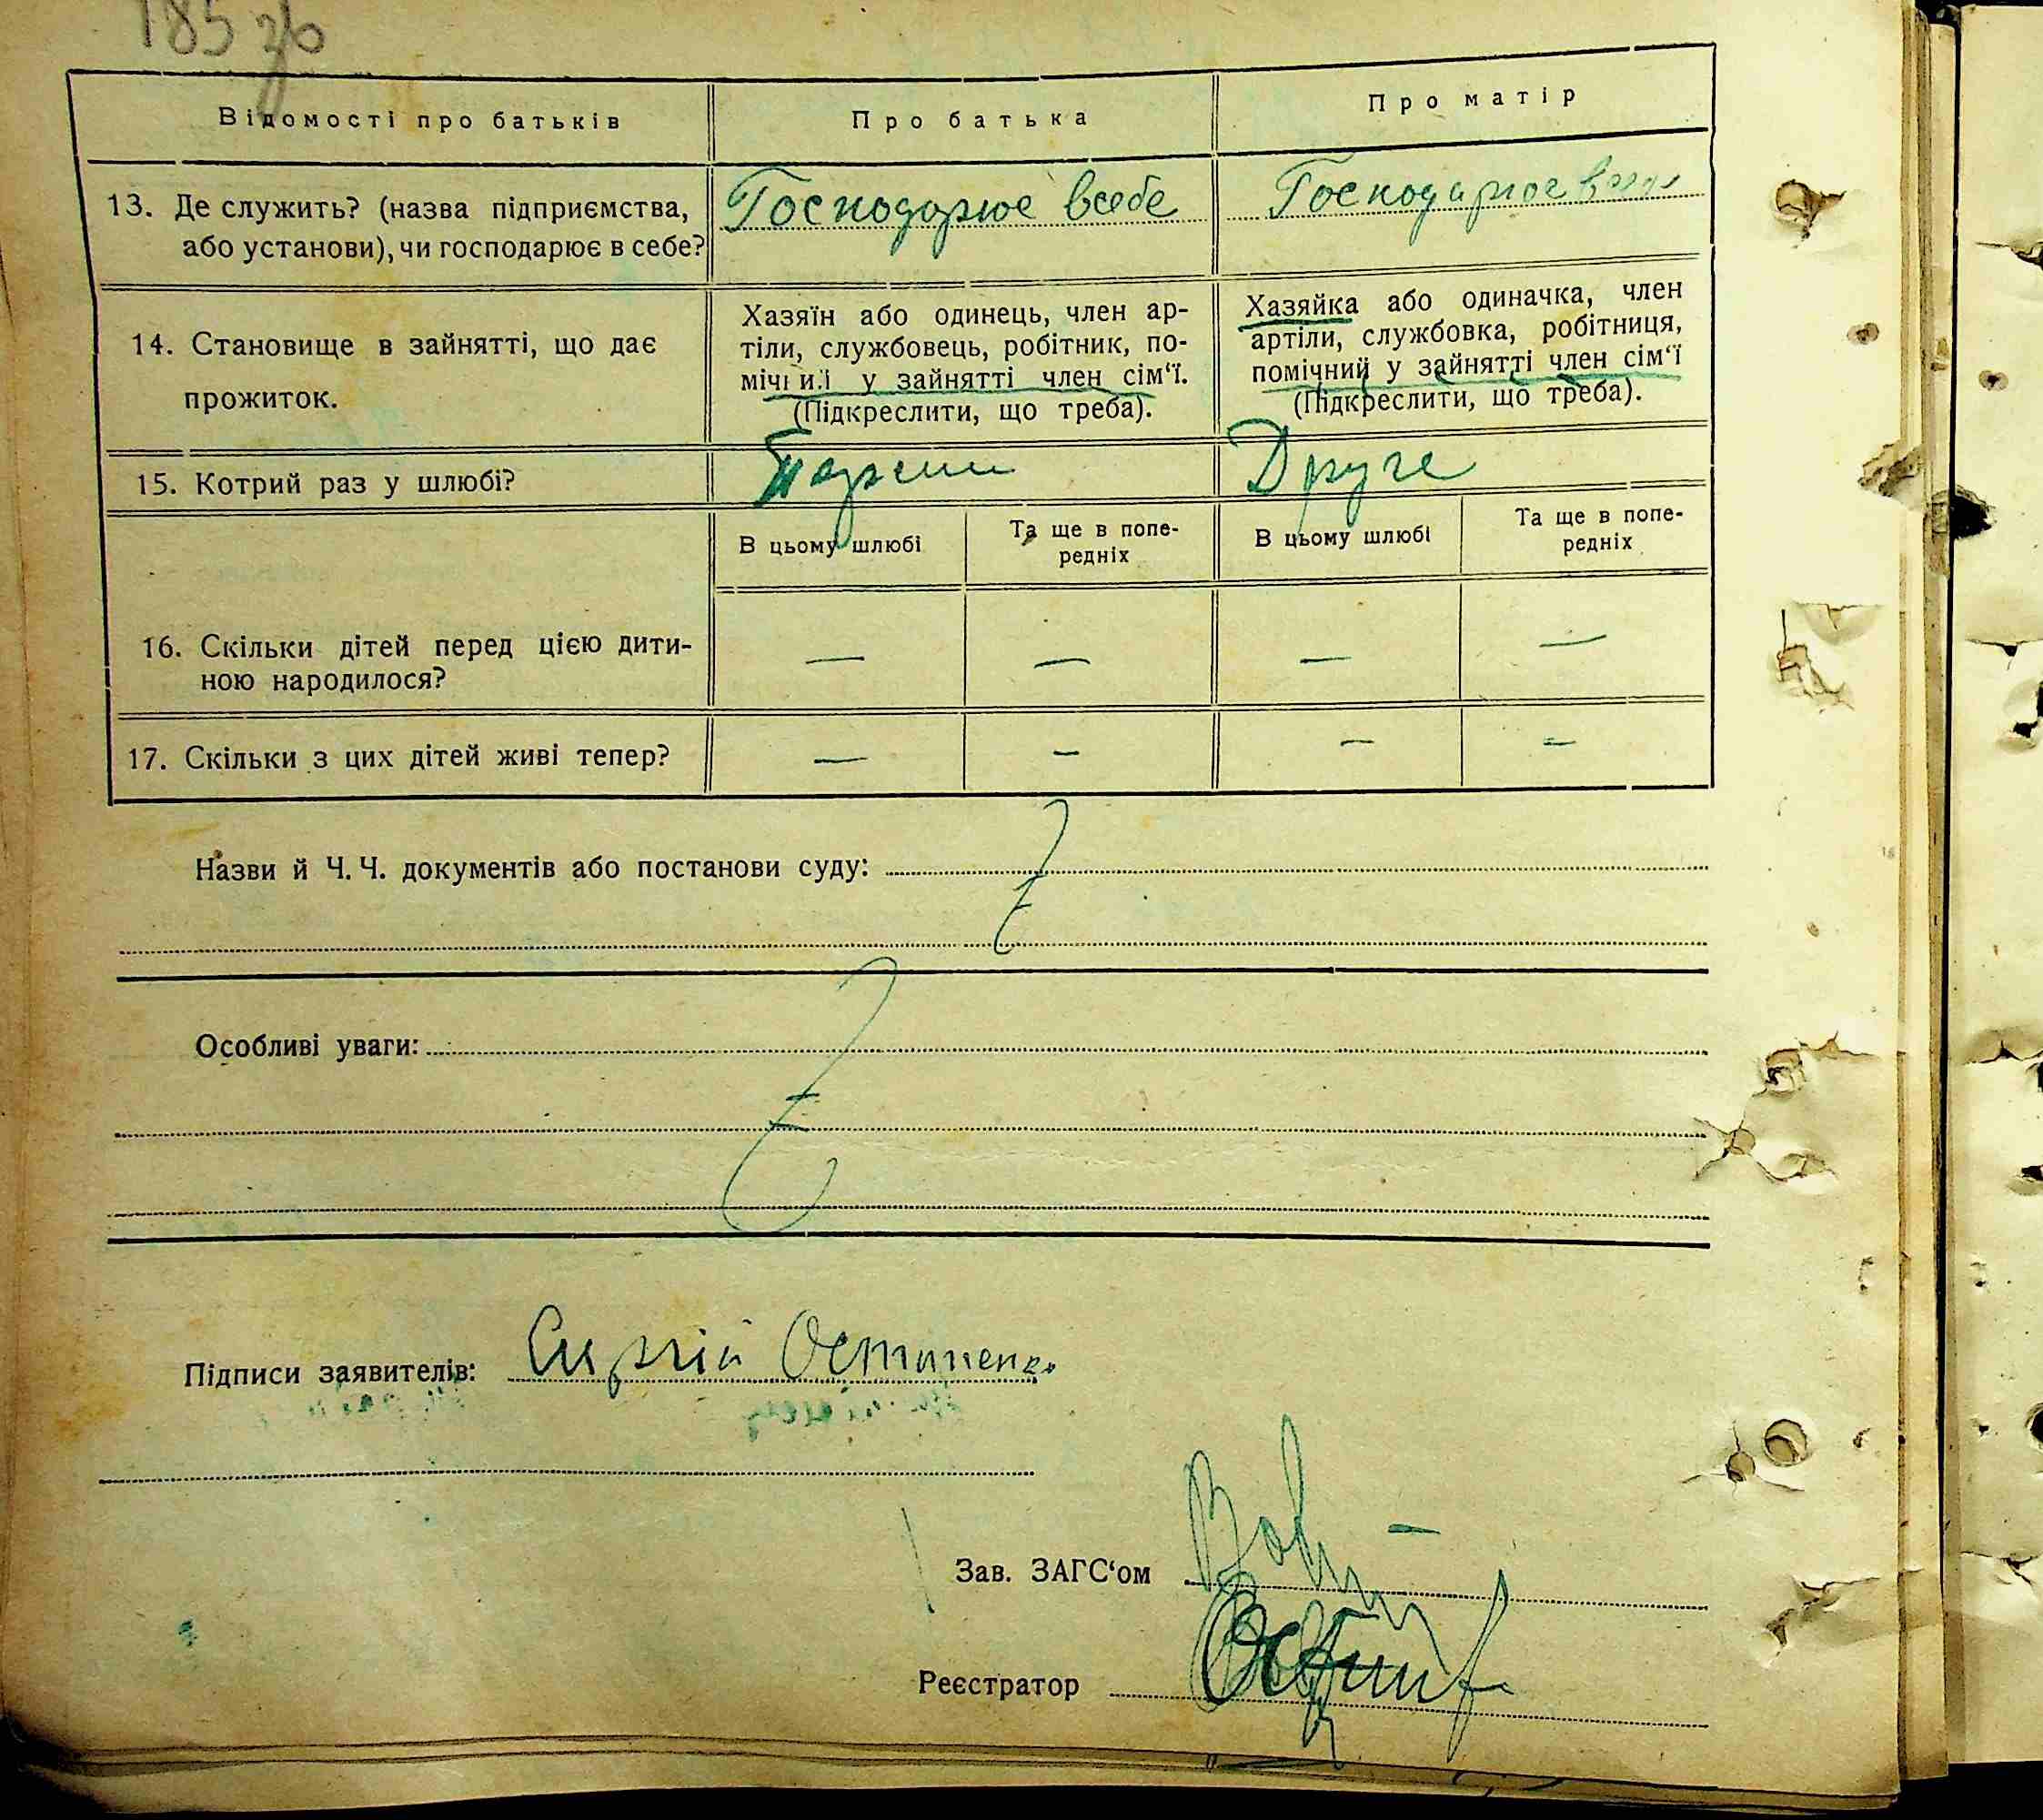 185 зв
Відомості про батьків
Про батька
Про матір
13. Де служить? (назва підприємства, або установи), чи господарює в себе?
Господарює всебе
Господарює
14. Становище в зайнятті, що дає прожиток.
Хазяїн або одинець, член ар-
тіли, службовець, робітник, по-
мічний у зайнятті член сім‘ї.
(Підкреслити, що треба).
Хазяйка або одиначка, член
артіли, службовка, робітниця,
помічний у зайнятті член сім‘ї
(Підкреслити, що треба).
15. Котрий раз у шлюбі?
Друге
В цьому шлюбі
Та ще в попе-
редніх
В цьому шлюбі
Та ще в попе-
редніх
16. Скільки дітей перед цією дити-
ною народилося?
— — — —
17. Скільки з цих дітей живі тепер?
— — — —
Назви й Ч. Ч. документів або постанови суду:
Особливі уваги:
Підписи заявителів:
Зав. ЗАГС‘ом
Реєстратор